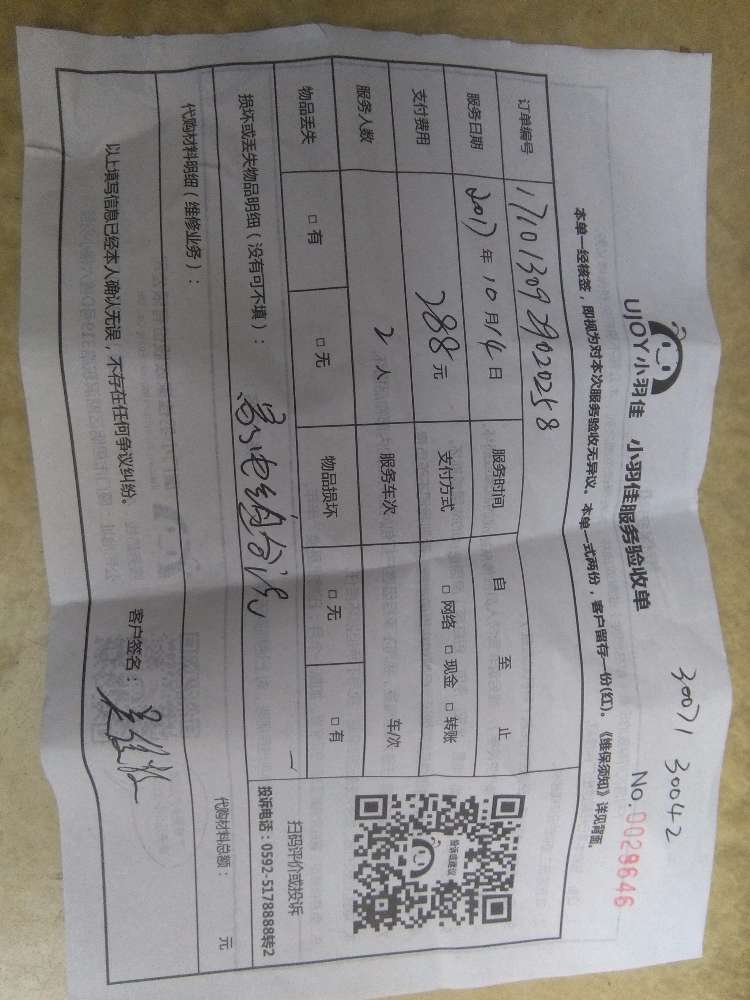 30071 30042
UJOY小羽佳 小羽佳服务验收单
No.0029646
本单一经核签，即视为对本次服务验收无异议。本单一式两份，客户留存一份(红)。《维保须知》详见背面。
订单编号 17101309290258
服务日期 2017年10月14日 服务时间 自 至 止
支付费用 288元 支付方式 □网络 □现金 □转账
服务人数 2人 服务车次 车/次
物品丢失 □有 □无 物品损坏 □无 □有
投诉或建议
扫码评价或投诉
投诉电话：0592-5178888转2
损坏或丢失物品明细（没有可不填）：
代购材料明细（维修业务）：
代购材料总额： 元
以上填写信息已经本人确认无误，不存在任何争议纠纷。 客户签名：